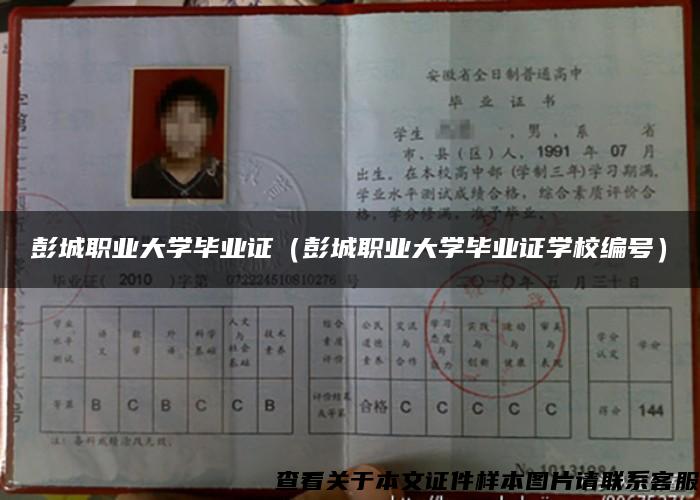 安徽省全日制普通高中
毕业证书
学生 ,男,系 省
市、县(区)人,1991 年 07 月
出生。在本校高中部(学制三年)学习期满,
学业水平测试成绩合格,综合素质评价合
格,学分修满,准予毕业。
彭城职业大学毕业证(彭城职业大学毕业证学校编号)
毕业证( 2010 )字第 072224510810276 号
二〇一〇年五月三十日
学业水平测试 语文 数学 外语 科学基础 人文与社会基础 技术素养
等第 B C B C C B
综合素质评价 公民道德素养 交流与合作 学习态度与能力 实践与创新 运动与健康 审美与表现
评价结果或等第 合格 C C C C C
学分认定 学分
得分 144
注:各科成绩涂改无效。
No 10131984
查看关于本文证件样本图片请联系客服